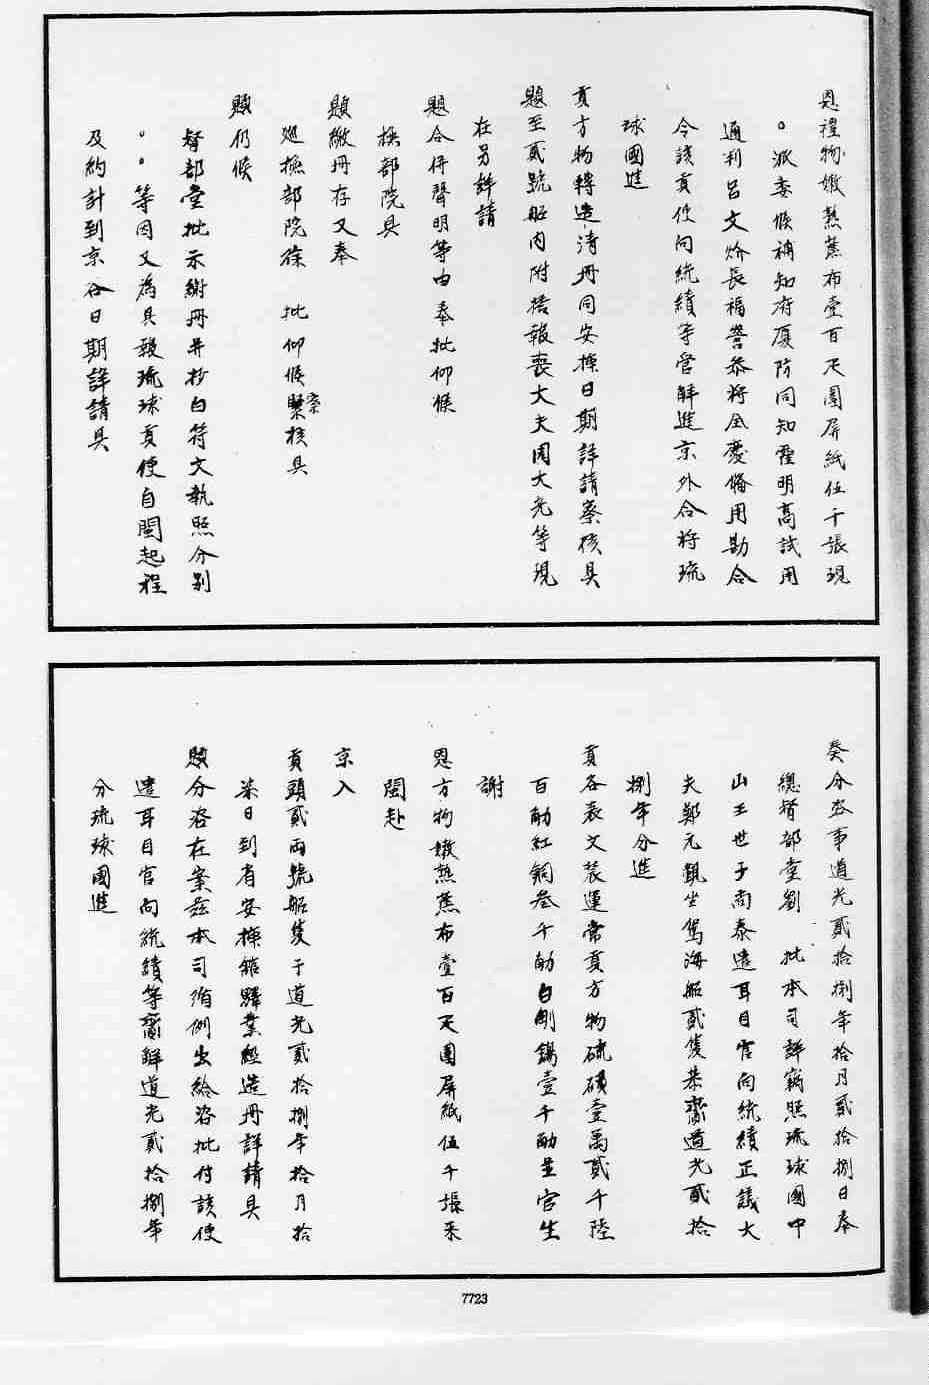 恩禮物嫩熟蕉布壹百疋圍屏紙伍千張現
。派委候補知府厦防同知霍明高試用
通判呂文炌長福營叅將全慶偹用勘合
今該貢使向統績等管觧進京外合將琉
球國進
貢方物轉造清冊同安揷日期詳請察核具
題至貳號船內附搭報喪大夫周大光等現
在另詳請
題合併聲明等由奉批仰候
撫部院具
題繳冊存又奉
巡撫部院徐　批仰候緊察核具
題仍候
督部堂批示繳冊并抄白符文執照分别
。。等因又為具報琉球貢使自閩起程
及約計到京各日期詳請具
奏分咨事道光貳拾捌年拾月貳拾捌日奉
總督部堂劉　批本司詳竊照琉球國中
山王世子尚泰遣耳目官向統績正議大
夫鄭元覲坐駕海船貳隻恭齎道光貳拾
捌年分進
貢各表文裝運常貢方物硫磺壹萬貳千陸
百觔紅銅叁千觔白剛錫壹千觔並官生
謝
恩方物嫩熟蕉布壹百疋圍屏紙伍千張来
閩赴
京入
貢頭貳兩號船隻于道光貳拾捌年拾月拾
柒日到省安揷舘驛業經造冊詳請具
題分咨在案茲本司循例出給咨批付該使
遣耳目官向統績等齎觧道光貳拾捌年
分琉球國進
7723